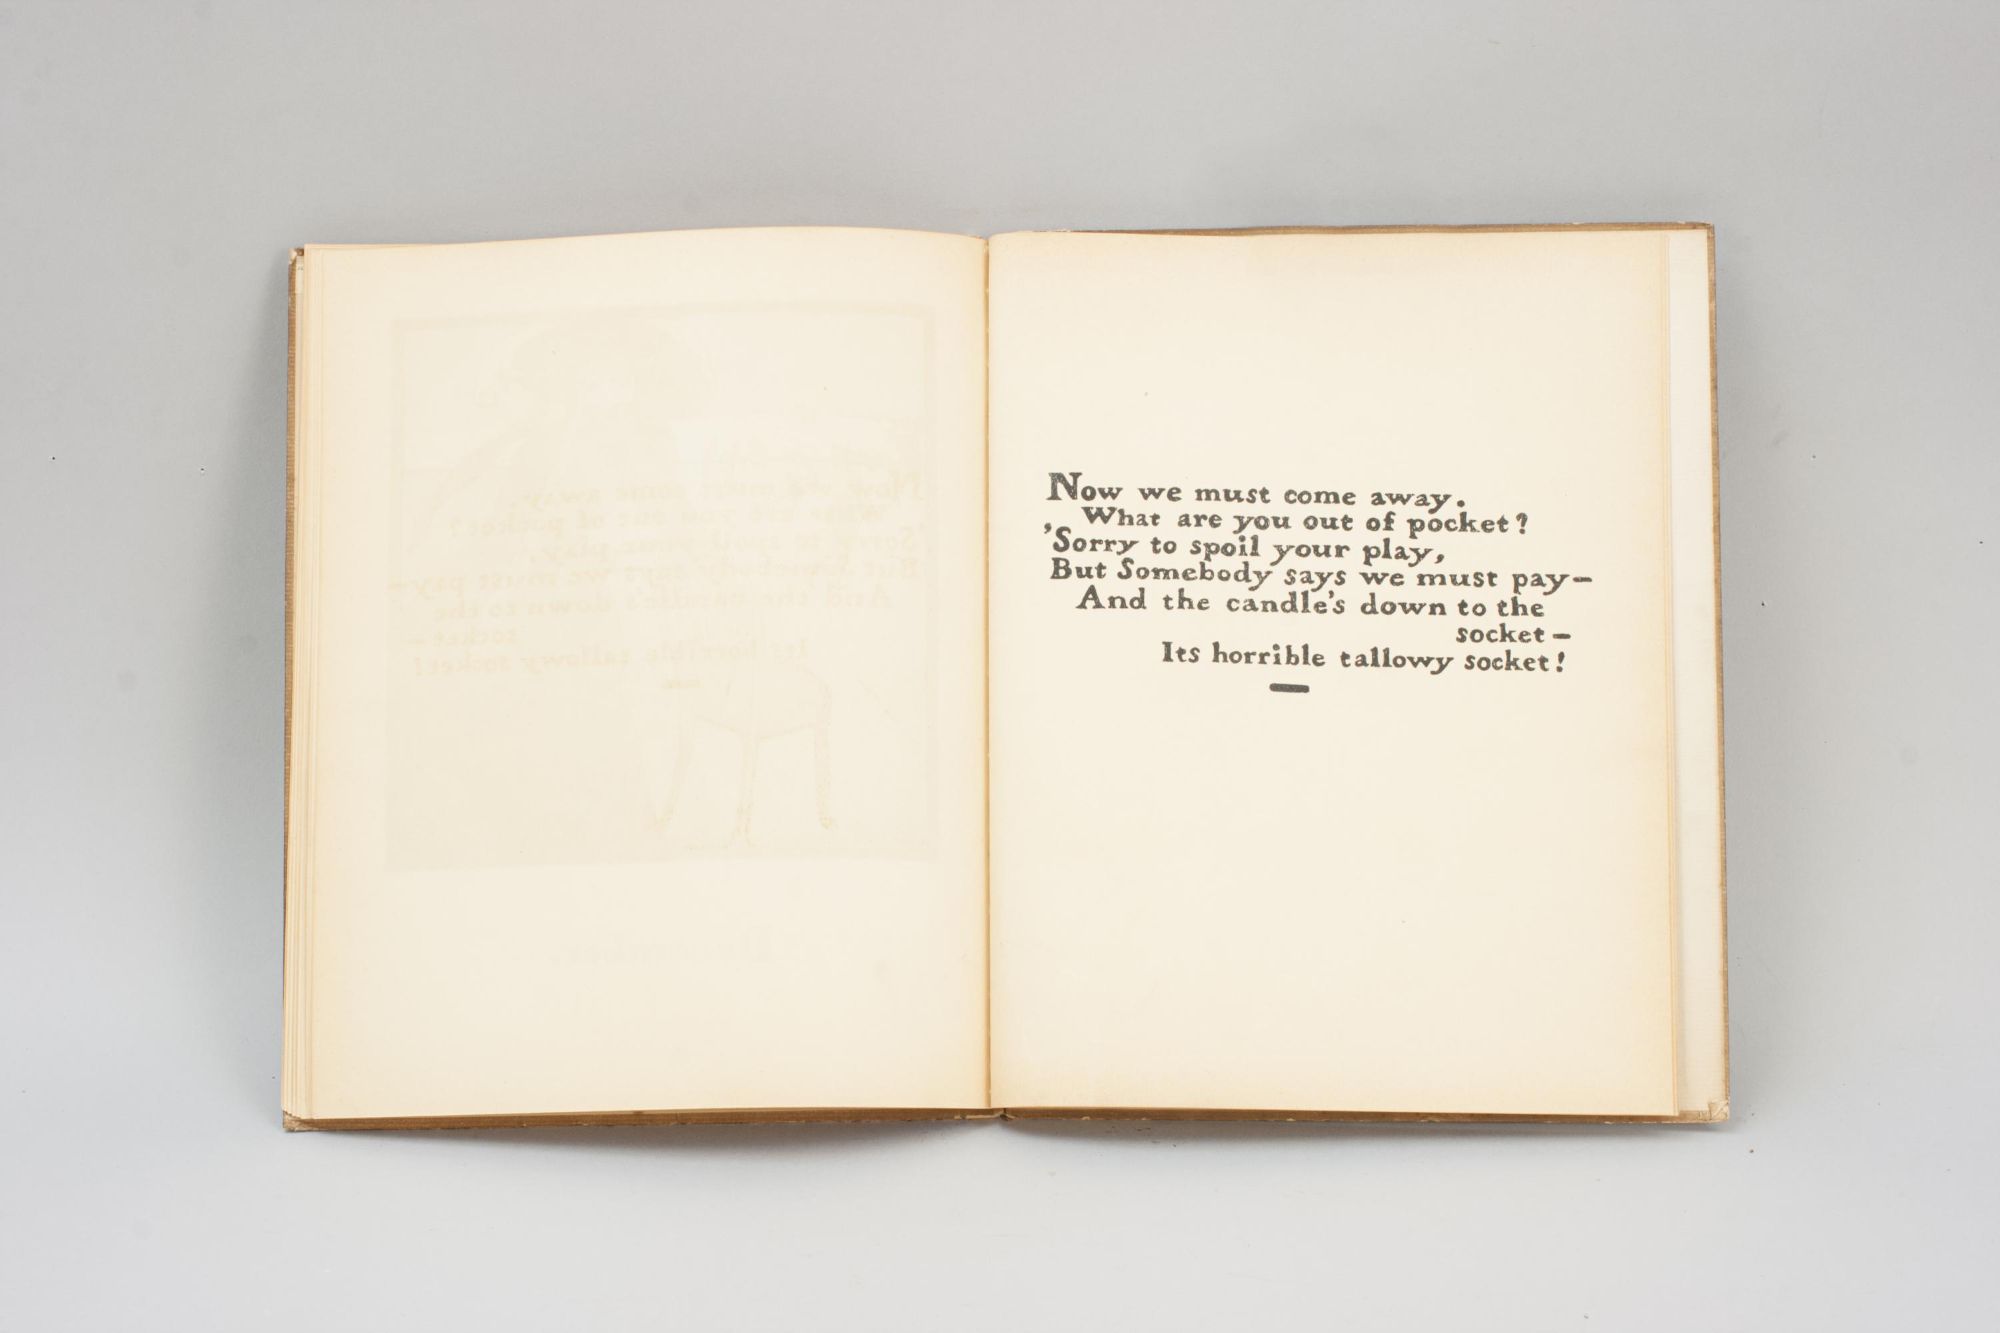 Now we must come away.
What are you out of pocket?
'Sorry to spoil your play,
But Somebody says we must pay—
And the candle's down to the
socket—
Its horrible tallowy socket!